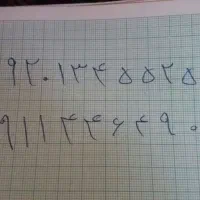 ۹۲۰۱۳۴۵۵۲۵
۹۱۱۴۴۶۴۹۰